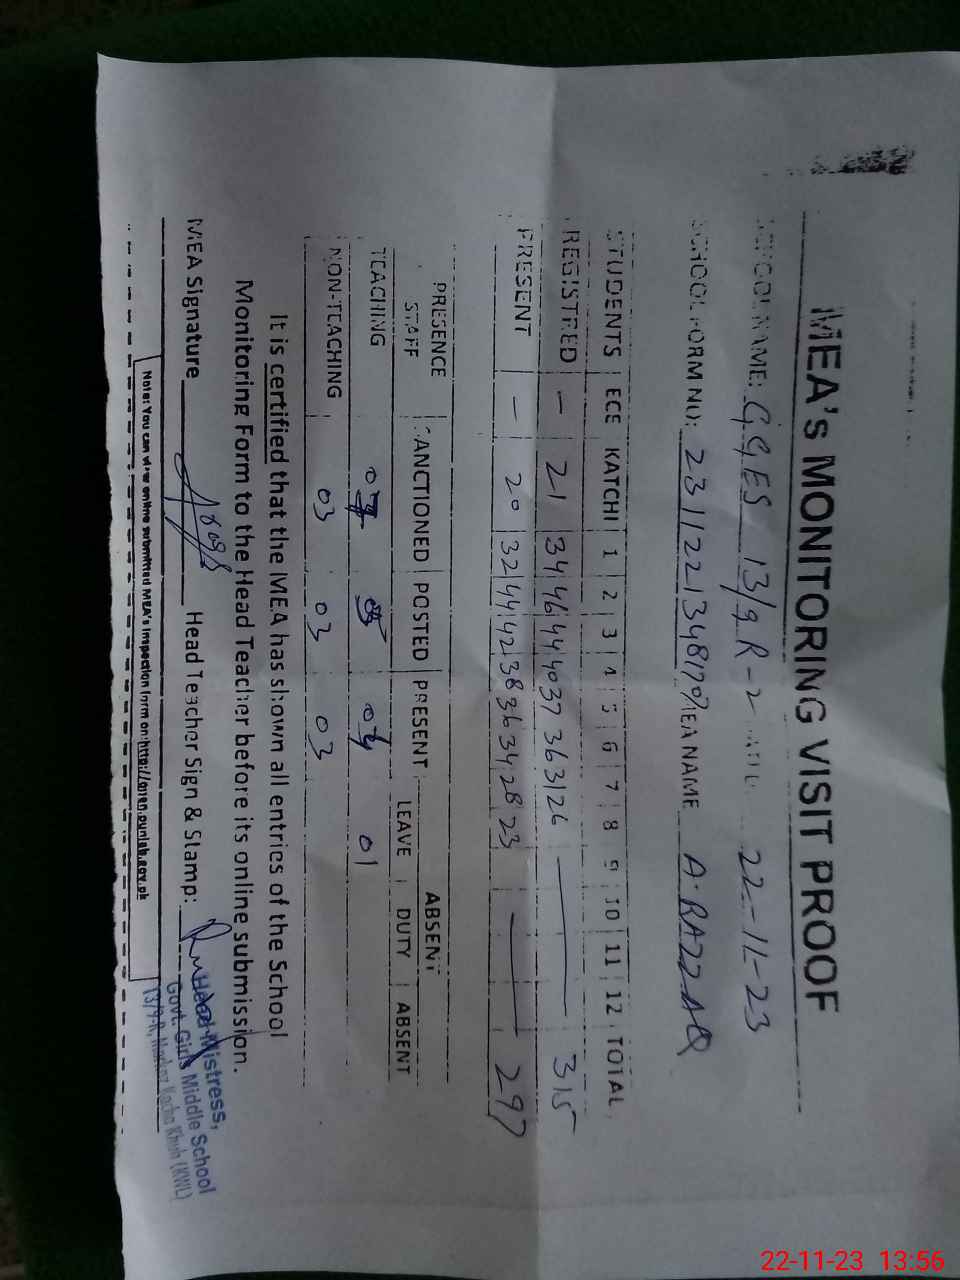 MEA's MONITORING VISIT PROOF
SCHOOL NAME: GGES 13/9.R-2 22-11-23
SCHOOL FORM NO: MEA NAME A.RAZZAQ
STUDENTS ECE KATCHI 1 2 3 4 5 6 7 8 9 10 11 12 TOTAL
REGISTRED - 21 34 46 44 40 37 36 31 26 — 315
PRESENT - 20 32 44 42 38 36 34 28 23 — 297
PRESENCE ABSENT
STAFF SANCTIONED POSTED PRESENT LEAVE DUTY ABSENT
TEACHING 04 01
NON-TEACHING 03 03 03
It is certified that the MEA has shown all entries of the School
Monitoring Form to the Head Teacher before its online submission.
MEA Signature Head Teacher Sign & Stamp:
Head Mistress,
Govt. Girls Middle School
13/9-R, Markaz Kacha Khuh (KWL)
Note: You can view online submitted MEA's inspection form on:
22-11-23 13:56